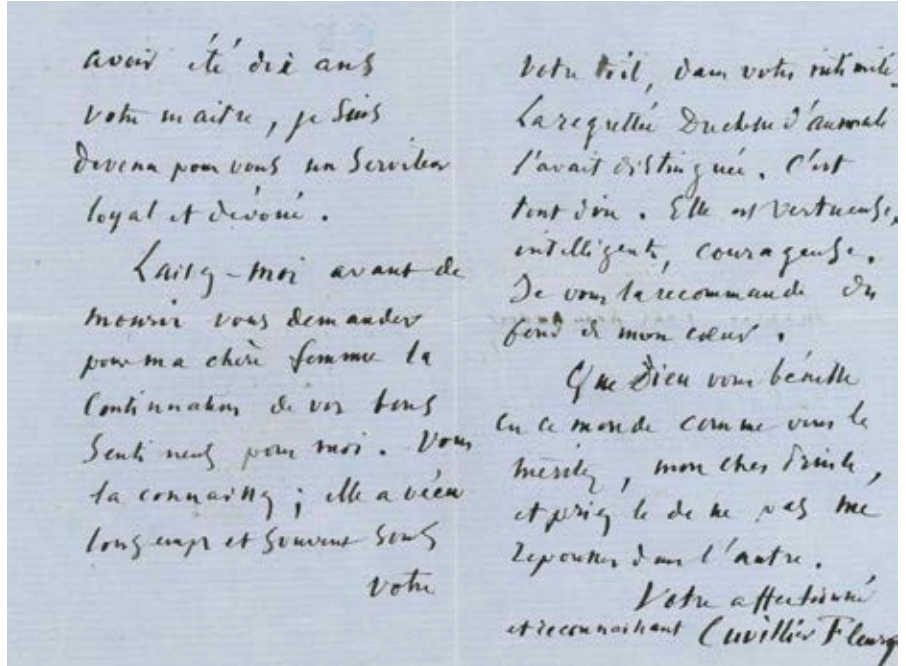 avoir été dix ans
votre maitre, je suis
devenu pour vous un serviteur
loyal et dévoué.
Laissez-moi avant de
mourir vous demander
pour ma chère femme la
continuation de vos bons
sentimens pour moi. Vous
la connaissez ; elle a vécu
longtemps et souvent sous
votre
votre toit, dans votre intimité.
La regrettée Duchesse d'aumale
l'avait distinguée. C'est
tout dire. Elle est vertueuse,
intelligente, courageuse.
Je vous la recommande du
fond de mon cœur.
Que Dieu vous bénisse
en ce monde comme vous le
méritez, mon cher Prince,
et priez le de ne pas me
repousser dans l'autre.
Votre affectionné
et reconnaissant Cuvillier Fleury